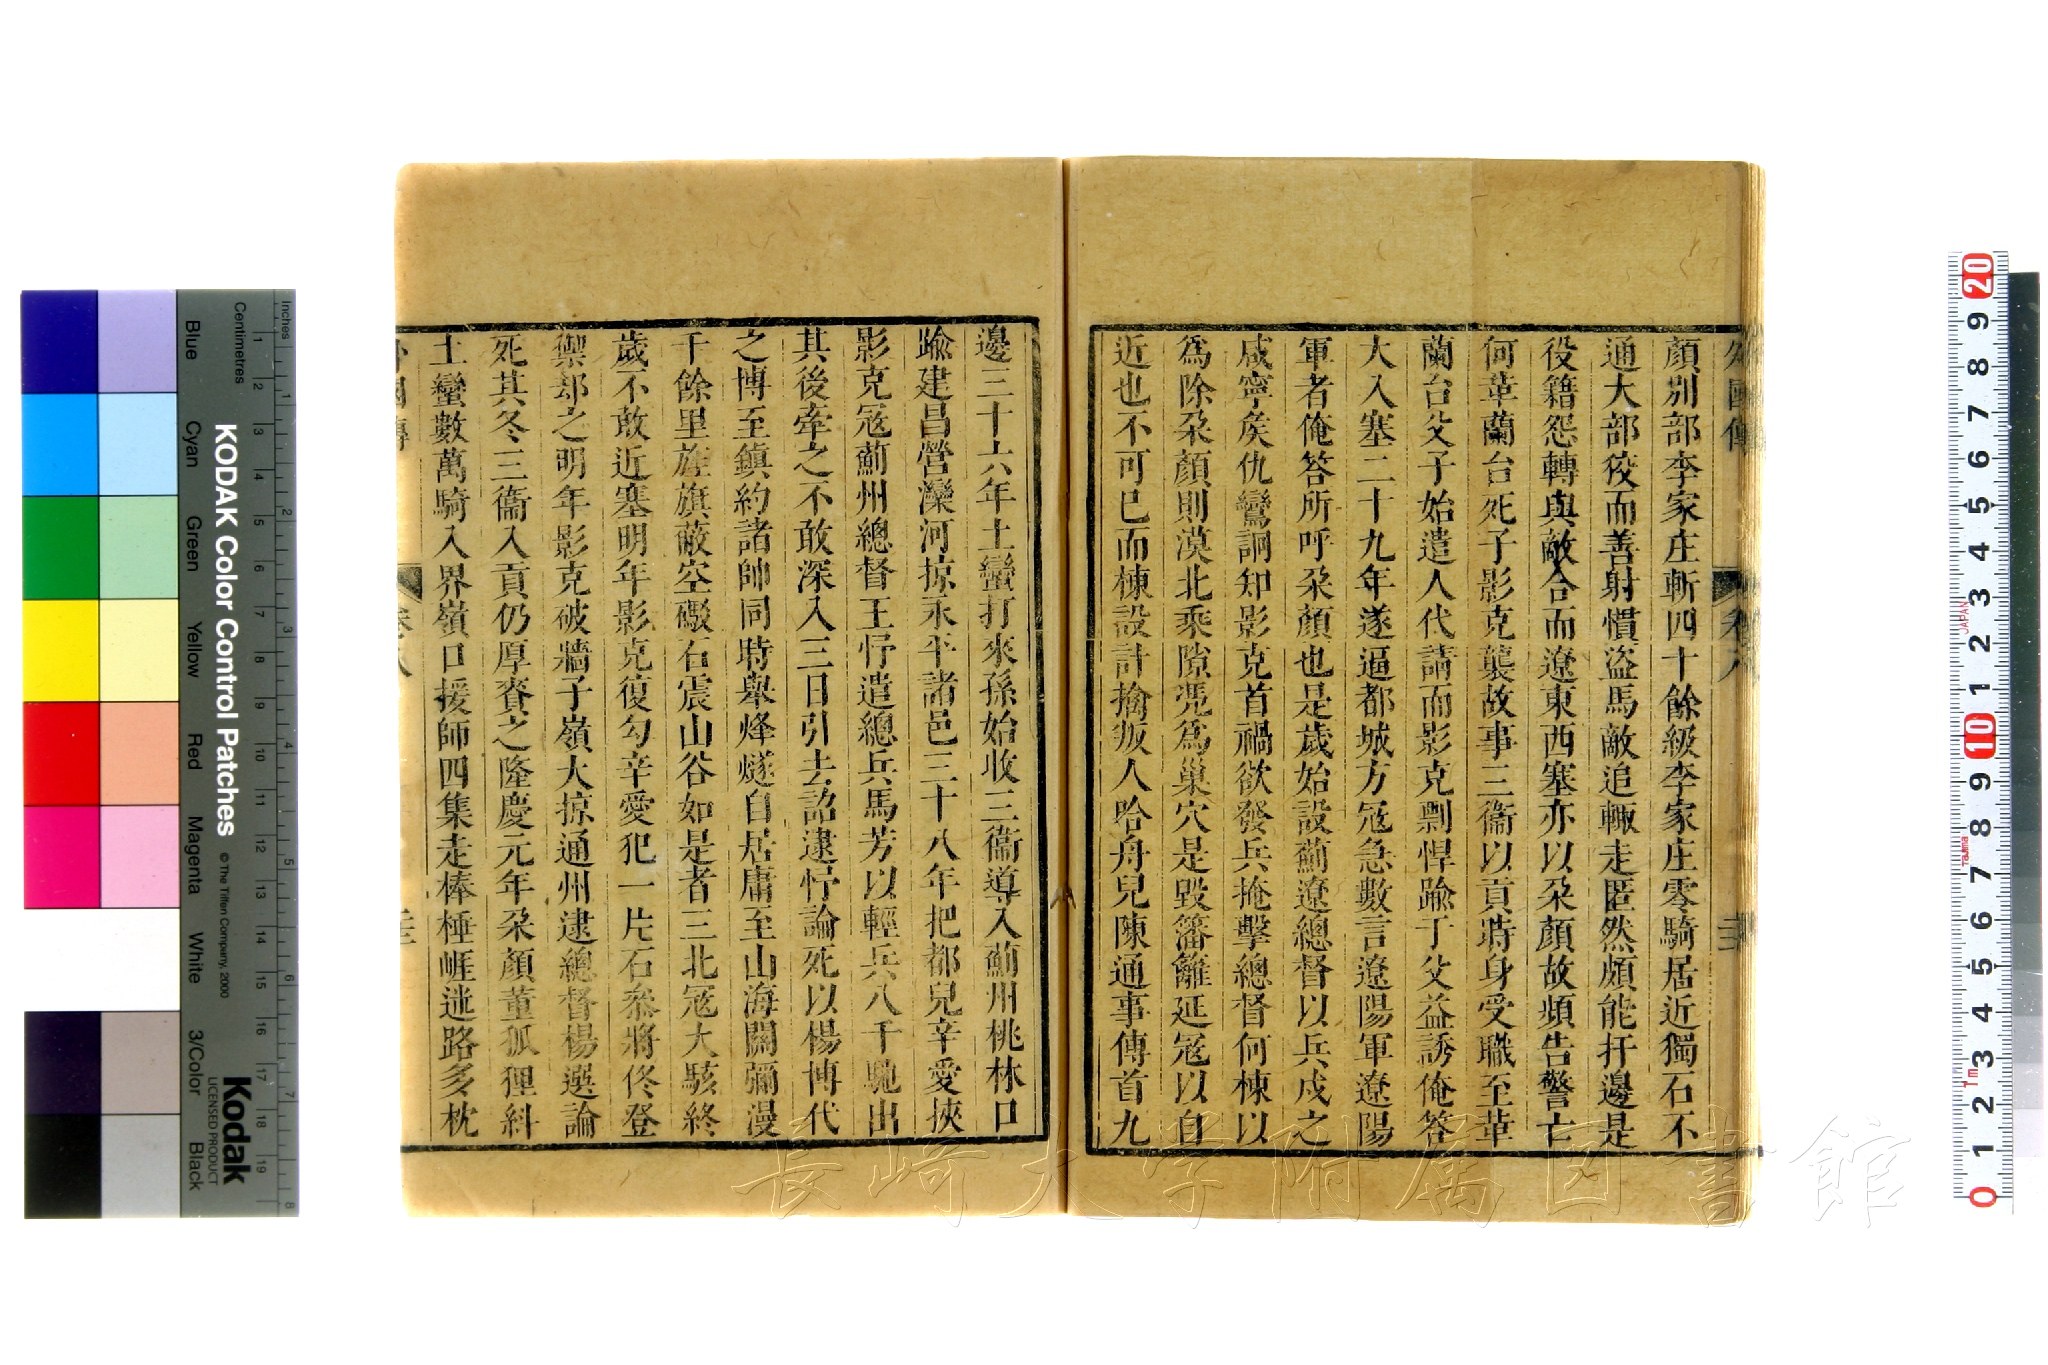 外國傳 卷八
顏別部李家庄斬四十餘級李家庄零騎居近獨石不
通大部狡而善射慣盜馬敵追輙走匿然頗能扞邊是
役籍怨轉與敵合而遼東西塞亦以朶顏故頻告警亡
何革蘭台死子影克襲故事三衞以貢時身受職至革
蘭台父子始遣人代請而影克剽悍踰于父益誘俺答
大入塞二十九年遂逼都城方冦急數言遼陽軍遼陽
軍者俺答所呼朶顏也是歲始設薊遼總督以兵戍之
咸寧矦仇鸞詗知影克首禍欲發兵掩擊總督何棟以
爲除朶顏則漠北乘隙凴爲巢穴是毀籓籬延冦以自
近也不可已而棟設計擒叛人哈舟兒陳通事傳首九
邊三十六年土蠻打來孫始收三衞導入薊州桃林口
踰建昌營灤河掠永平諸邑三十八年把都兒辛愛挾
影克冦薊州總督王忬遣總兵馬芳以輕兵八千馳出
其後牽之不敢深入三日引去詔逮忬論死以楊博代
之博至鎮約諸帥同時舉烽燧自居庸至山海關彌漫
千餘里旌旗蔽空礮石震山谷如是者三北冦大駭終
歲不敢近塞明年影克復勾辛愛犯一片石叅將佟登
禦却之明年影克破牆子嶺大掠通州逮總督楊選論
死其冬三衞入貢仍厚賚之隆慶元年朶顏董狐狸糾
土蠻數萬騎入界嶺口援師四集走棒棰崕迷路多枕
外國傳 卷八
KODAK Color Control Patches
© The Tiffen Company, 2000
Kodak
LICENSED PRODUCT
Inches
Centimetres
Blue
Cyan
Green
Yellow
Red
Magenta
White
3/Color
Black
JAPAN
Tajima
1m
長崎大学附属図書館